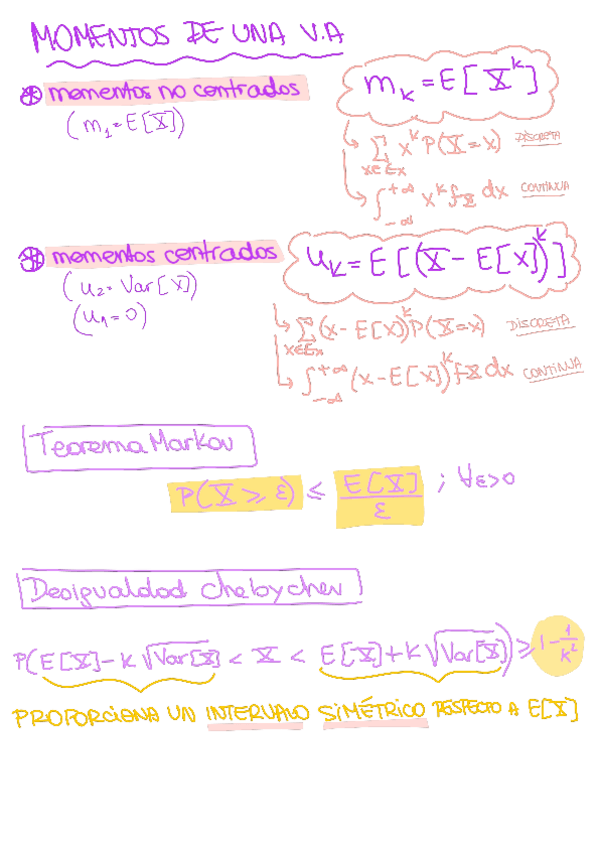 MOMENTOS DE UNA V.A
momentos no centrados
(m₁=E[X])
mₖ=E[Xᵏ]
∑x∈Eₓ xᵏP(X=x) DISCRETA
∫₋∞⁺∞ xᵏfₓ dx CONTINUA
momentos centrados
(u₂=Var[X])
(u₁=0)
uₖ=E[(X-E[X])ᵏ]
∑x∈Eₓ (x-E[X])ᵏP(X=x) DISCRETA
∫₋∞⁺∞ (x-E[X])ᵏfₓ dx CONTINUA
Teorema Markov
P(X⩾ε) ≤ E[X]/ε ; ∀ε>0
Desigualdad Chebychev
P(E[X]-k√Var[X] < X < E[X]+k√Var[X]) ⩾ 1-1/k²
PROPORCIONA UN INTERVALO SIMÉTRICO RESPECTO A E[X]